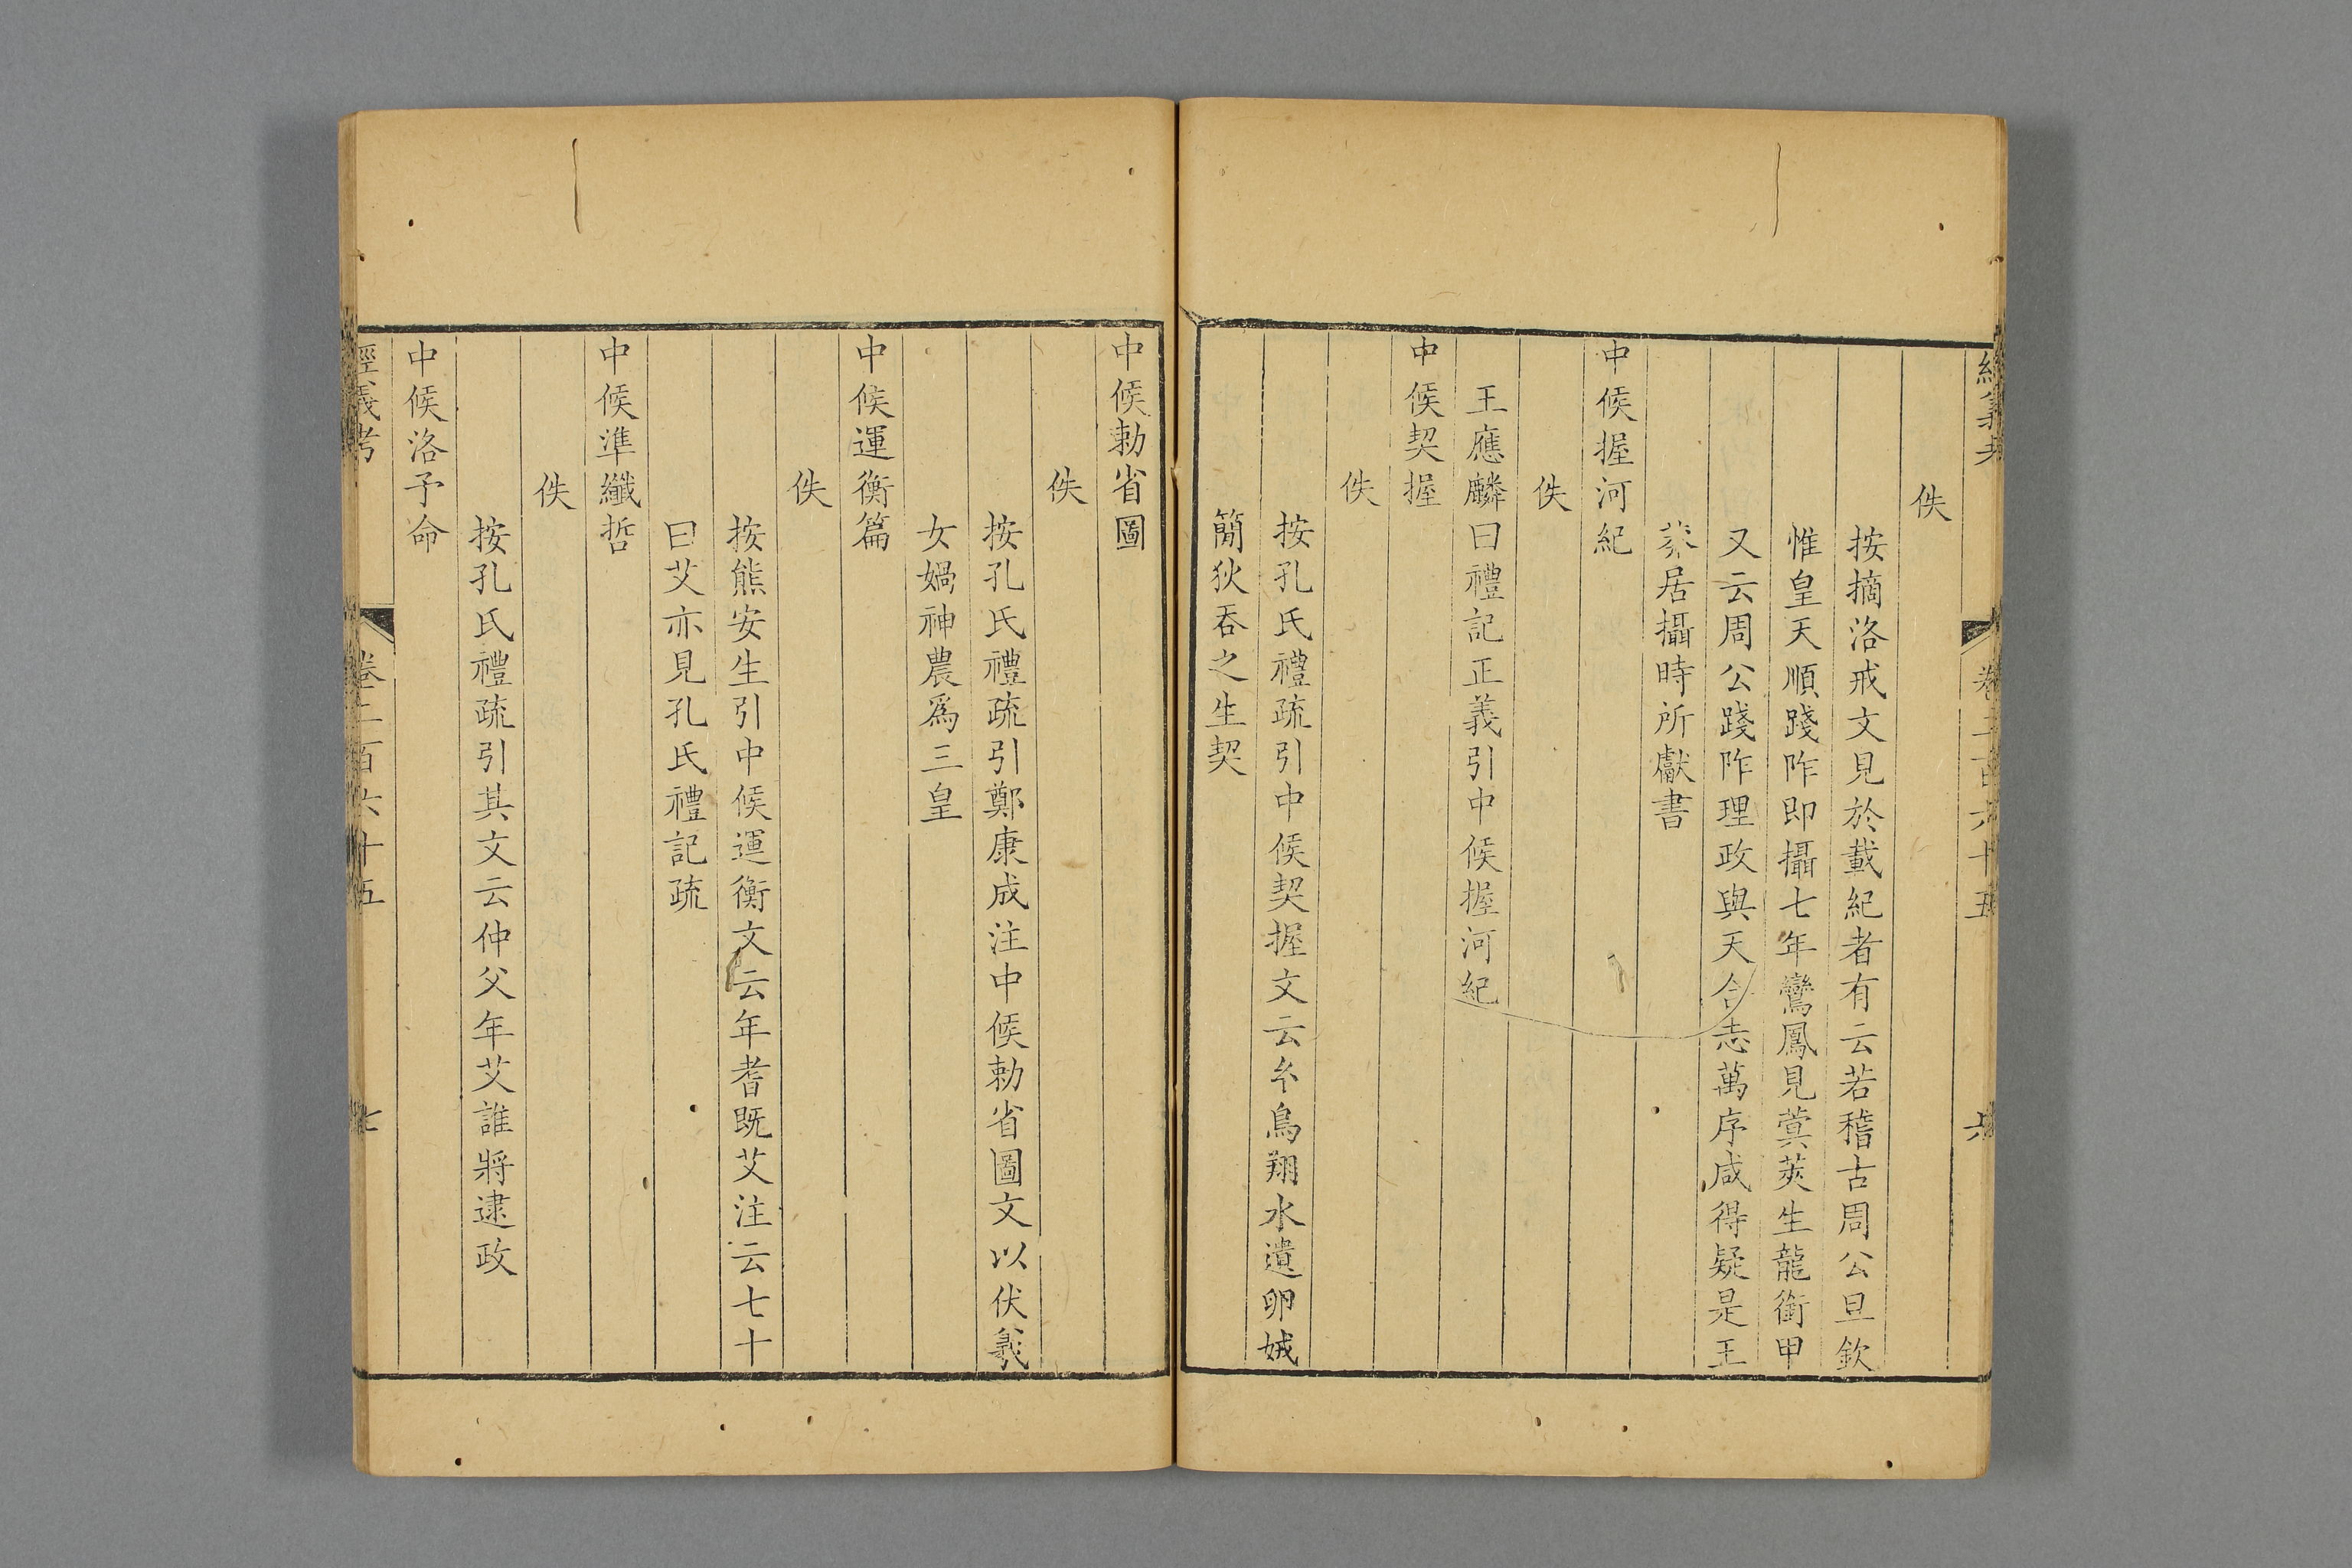 佚
按摘洛戒文見於載紀者有云若稽古周公旦欽
惟皇天順踐阼即攝七年鸞鳳見蓂莢生龍銜甲
又云周公踐阼理政與天合志萬序咸得疑是王
莽居攝時所獻書
中候握河紀
佚
王應麟曰禮記正義引中候握河紀
中候契握
佚
按孔氏禮疏引中候契握文云𤣥鳥翔水遺卵娀
簡狄吞之生契
中候勅省圖
佚
按孔氏禮疏引鄭康成注中候勅省圖文以伏羲
女媧神農爲三皇
中候運衡篇
佚
按熊安生引中候運衡文云年耆既艾注云七十
曰艾亦見孔氏禮記疏
中候準纖哲
佚
按孔氏禮疏引其文云仲父年艾誰將逮政
中候洛予命
經義考
卷二百六十五
七